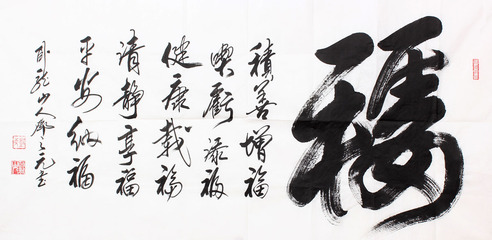 福
積善增福
喫虧添福
健康載福
清靜享福
平安納福
卧龍山人廖之元書